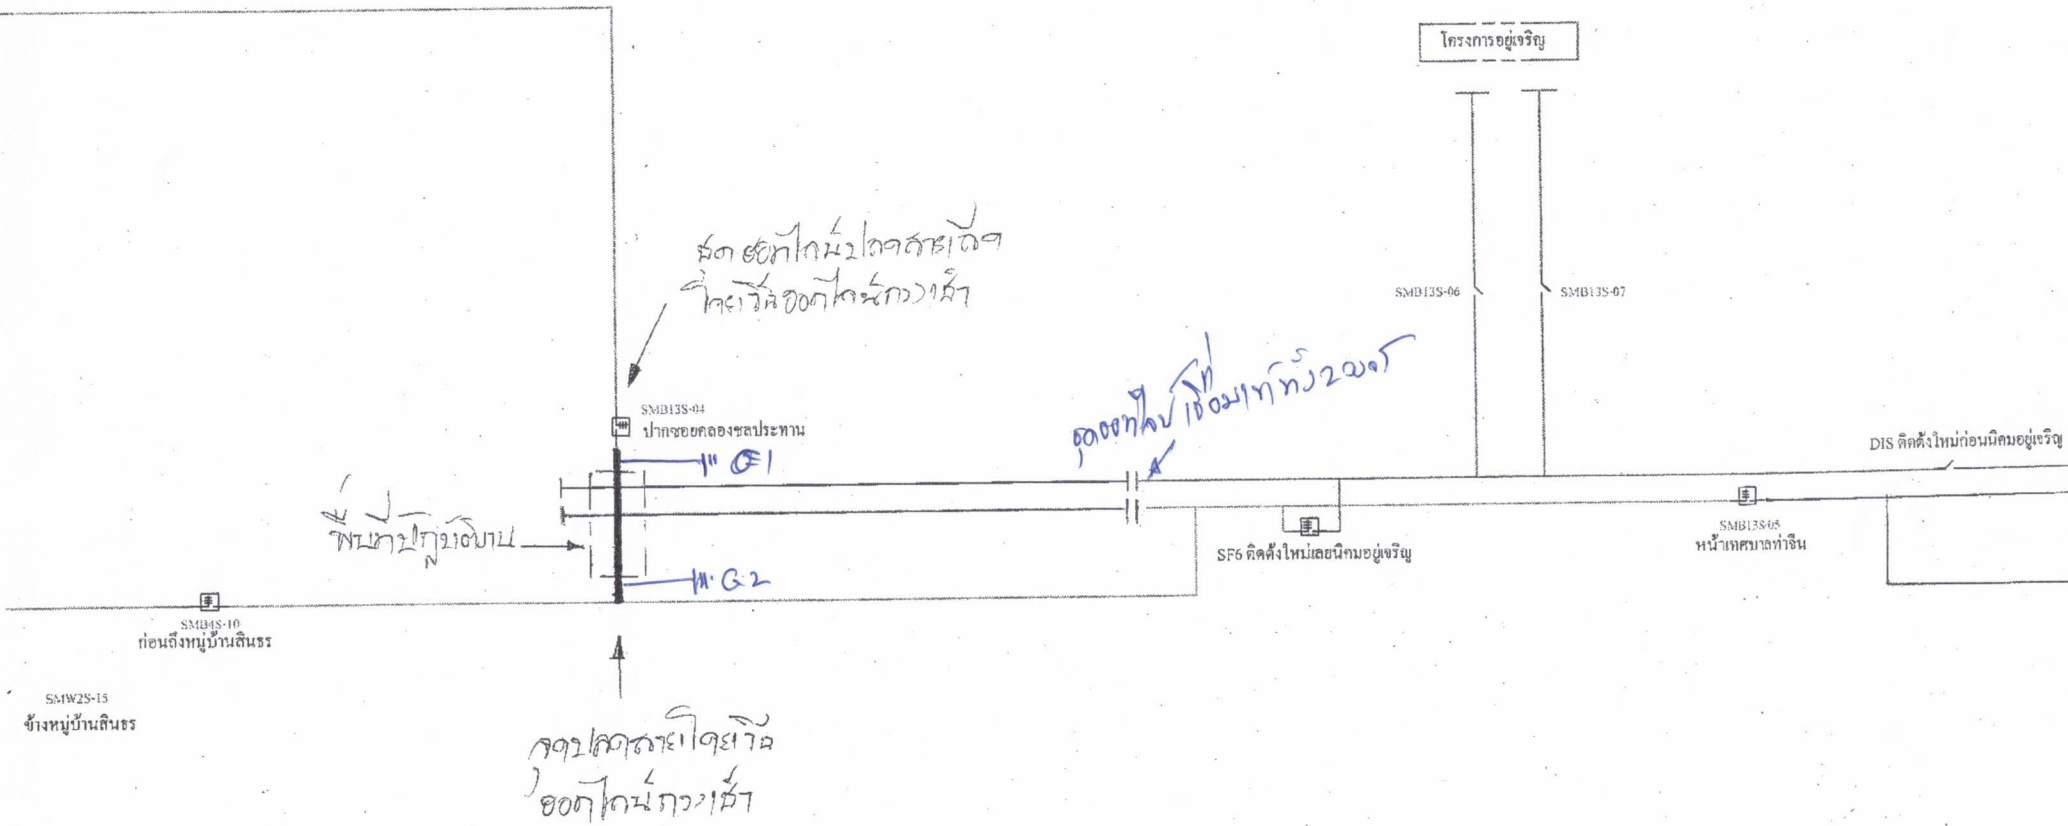 โครงการอยู่เจริญ
SMB13S-06
SMB13S-07
จุดฮอทไลน์ปลดสาย
โดยวิธีฮอทไลน์กระเช้า
SMB13S-04
ปากซอยคลองชลประทาน
G1
จุดฮอทไลน์เชื่อมเทททั้ง 2 วงจร
DIS ติดตั้งใหม่ก่อนนิคมอยู่เจริญ
พื้นที่ปฏิบัติงาน
SF6 ติดตั้งใหม่เลยนิคมอยู่เจริญ
SMB13S-05
หน้าเทศบาลท่าจีน
G.2
SMB4S-10
ก่อนถึงหมู่บ้านสินธร
SMW2S-15
ข้างหมู่บ้านสินธร
จุดปลดสายโดยวิธี
ฮอทไลน์กระเช้า